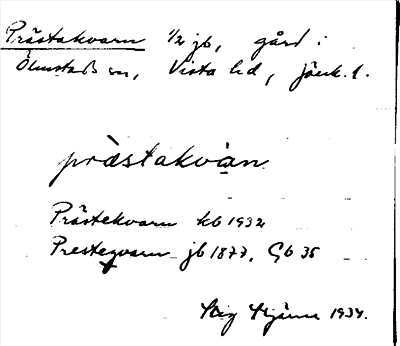 Prästakvarn 1/2 jb, gård i
Ölmstads sn, Vista hd, Jönk. l.
pràstakvàn
Prästekvarn kb 1932
Presteqvarn jb 1877, Gb 35
Stig Stjärne 1934.